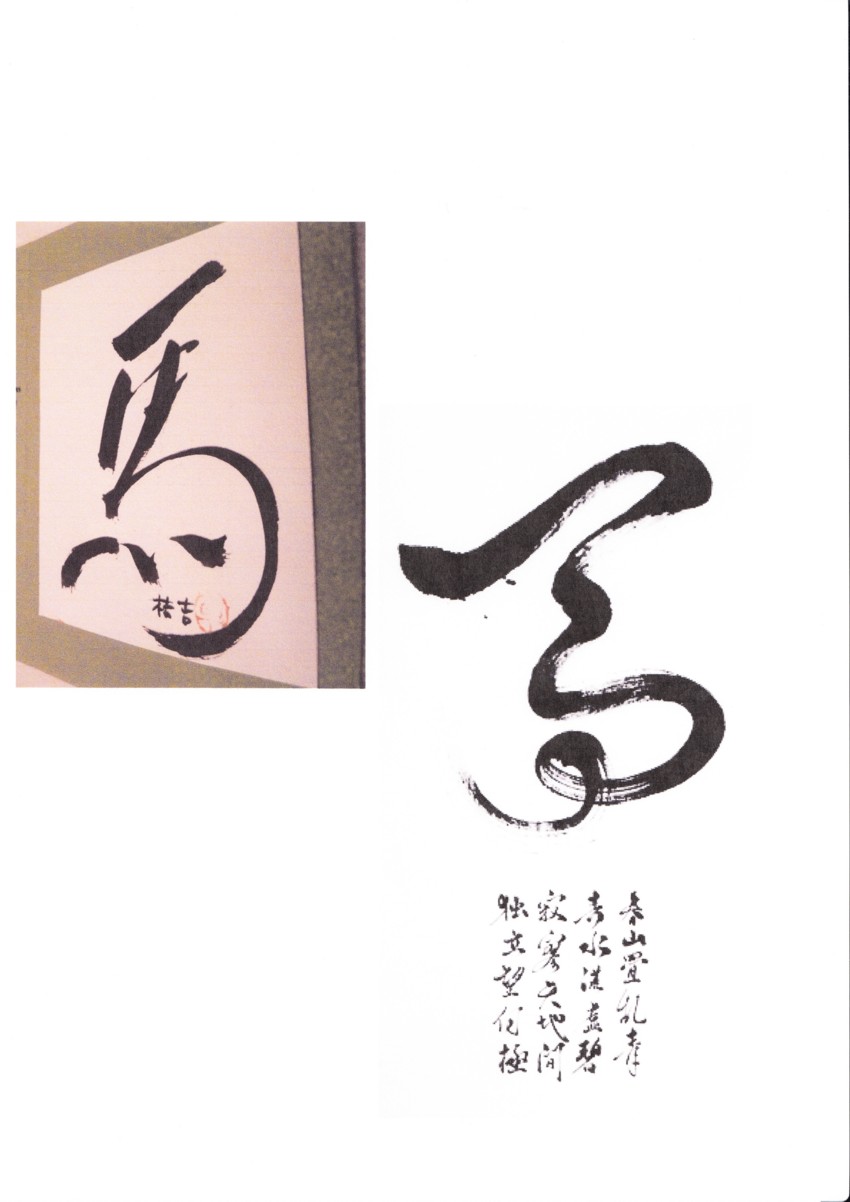 馬
馬
春山畳乱青
春水漾虚碧
寂寥天地間
独立望何極